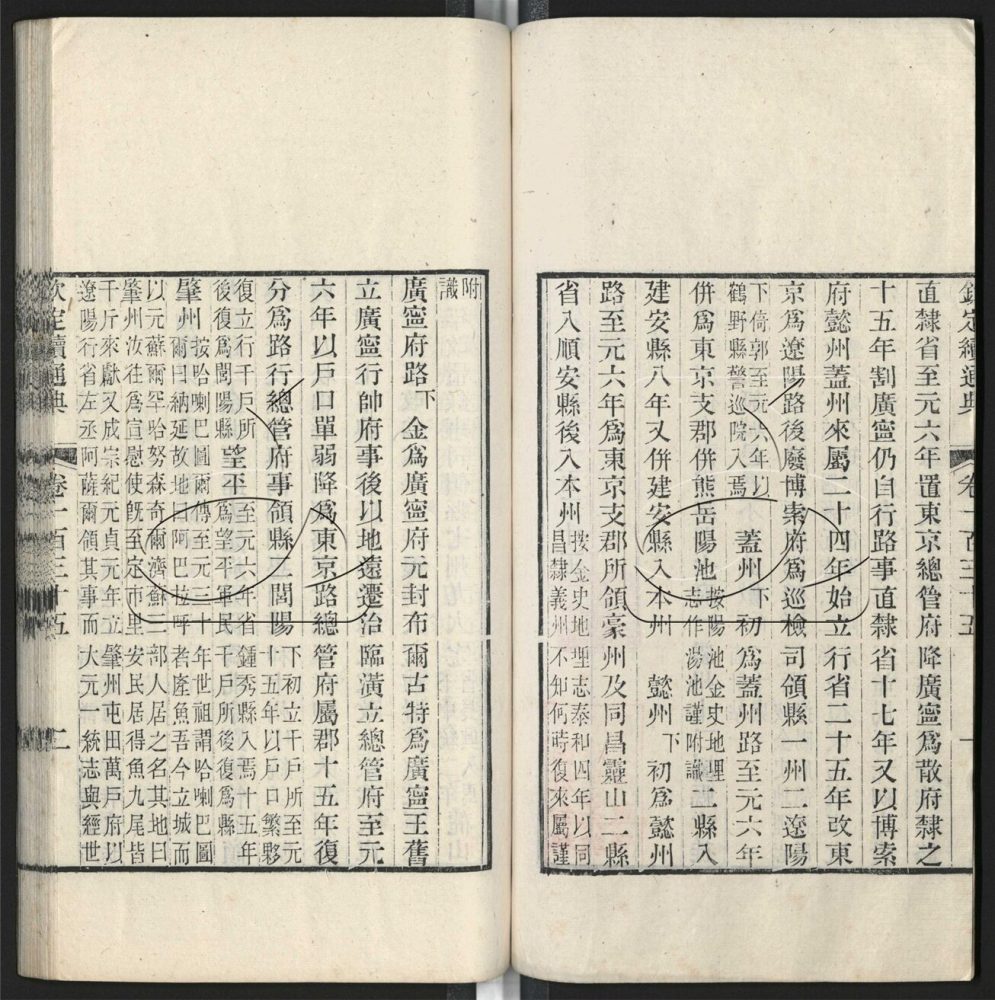 欽定續通典 卷一百三十五 一
直隸省至元六年置東京總管府降廣寧爲散府隸之
十五年割廣寧仍自行路事直隸省十七年又以博索
府懿州蓋州來屬二十四年始立行省二十五年改東
京爲遼陽路後廢博索府爲巡檢司領縣一州二遼陽
下倚郭至元六年以
鶴野縣警巡院入焉
蓋州下 初爲蓋州路至元六年
併爲東京支郡併熊岳陽池
按陽池金史地理
志作湯池謹附識
二縣入
建安縣八年又併建安縣入本州 懿州下 初爲懿州
路至元六年爲東京支郡所領豪州及同昌靈山二縣
省入順安縣後入本州
按金史地理志泰和四年以同
昌隸義州不知何時復來屬謹
附
識
廣寧府路下 金爲廣寧府元封布爾古特爲廣寧王舊
立廣寧行帥府事後以地遠遷治臨潢立總管府至元
六年以戶口單弱降爲東京路總管府屬郡十五年復
分爲路行總管府事領縣二閭陽
下初立千戶所至元
十五年以戶口繁夥
復立行千戶所
後復爲閭陽縣
望平
至元六年省鍾秀縣入焉十五年
爲望平軍民千戶所後復爲縣
肇州
按哈喇巴圖爾傳至元三十年世祖謂哈喇巴圖
爾曰納延故地曰阿巴拉呼者產魚吾今立城而
以元蘇爾罕哈努森奇爾濟蘇三部人居之名其地曰
肇州汝往爲宣慰使旣至定市里安民居得魚九尾皆
千斤來獻又成宗紀元貞元年立肇州屯田萬戶府以
遼陽行省左丞阿薩爾領其事而大元一統志與經世
欽定續通典 卷一百三十五 二